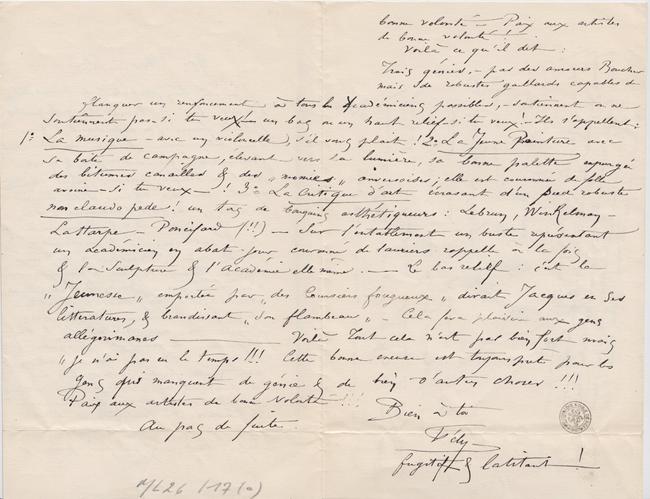 bonne volonté – Paix aux artistes
de bonne volonté !
Voilà ce qu'il dit :
Trois génies, – pas des amours Boucher
mais de robustes gaillards capables de
flanquer un renfoncement à tous les Académiciens possibles, – soutiennent ou ne
soutiennent pas si tu veux – un bas ou un haut relief si tu veux – Ils s'appellent :
1º La musique – avec un violoncelle, s'il vous plait ! 2º La Jeune Peinture avec
sa boîte de campagne, élevant vers la lumière, sa bonne palette expurgée
des bitumes canailles & des „ momies „ anversoises ; elle est couronnée de folle
avoine – si tu veux – ! 3º La Critique d'art écrasant d'un pied robuste
non claudo pede ! un tas de bouquins esthétiqueurs : Lebrun, Winkelman –
Laharpe – Poncifard (!!) – Sur l'entablement un buste représentant
un académicien en abat-jour couronné de lauriers rappelle à la fois
& la Sculpture & l'Académie elle même. — Le bas relief : c'est la
„ Jeunesse „ emportée par „ des Coursiers fougueux „ dirait Jacques en ses
littératures, & brandissant „ son flambeau „ – Cela fera plaisir aux gens
allégorimanes — Voilà Tout cela n'est pas bien fort mais
„ je n'ai pas eu le temps !!! Cette bonne excuse est toujours prête pour les
gens qui manquent de génie & de bien d'autres choses !!!
Paix aux artistes de bonne volonté !!!
Bien à toi
Au pas de fuite
Fély
fugitif & latitant !
ML 26 /17 (a)